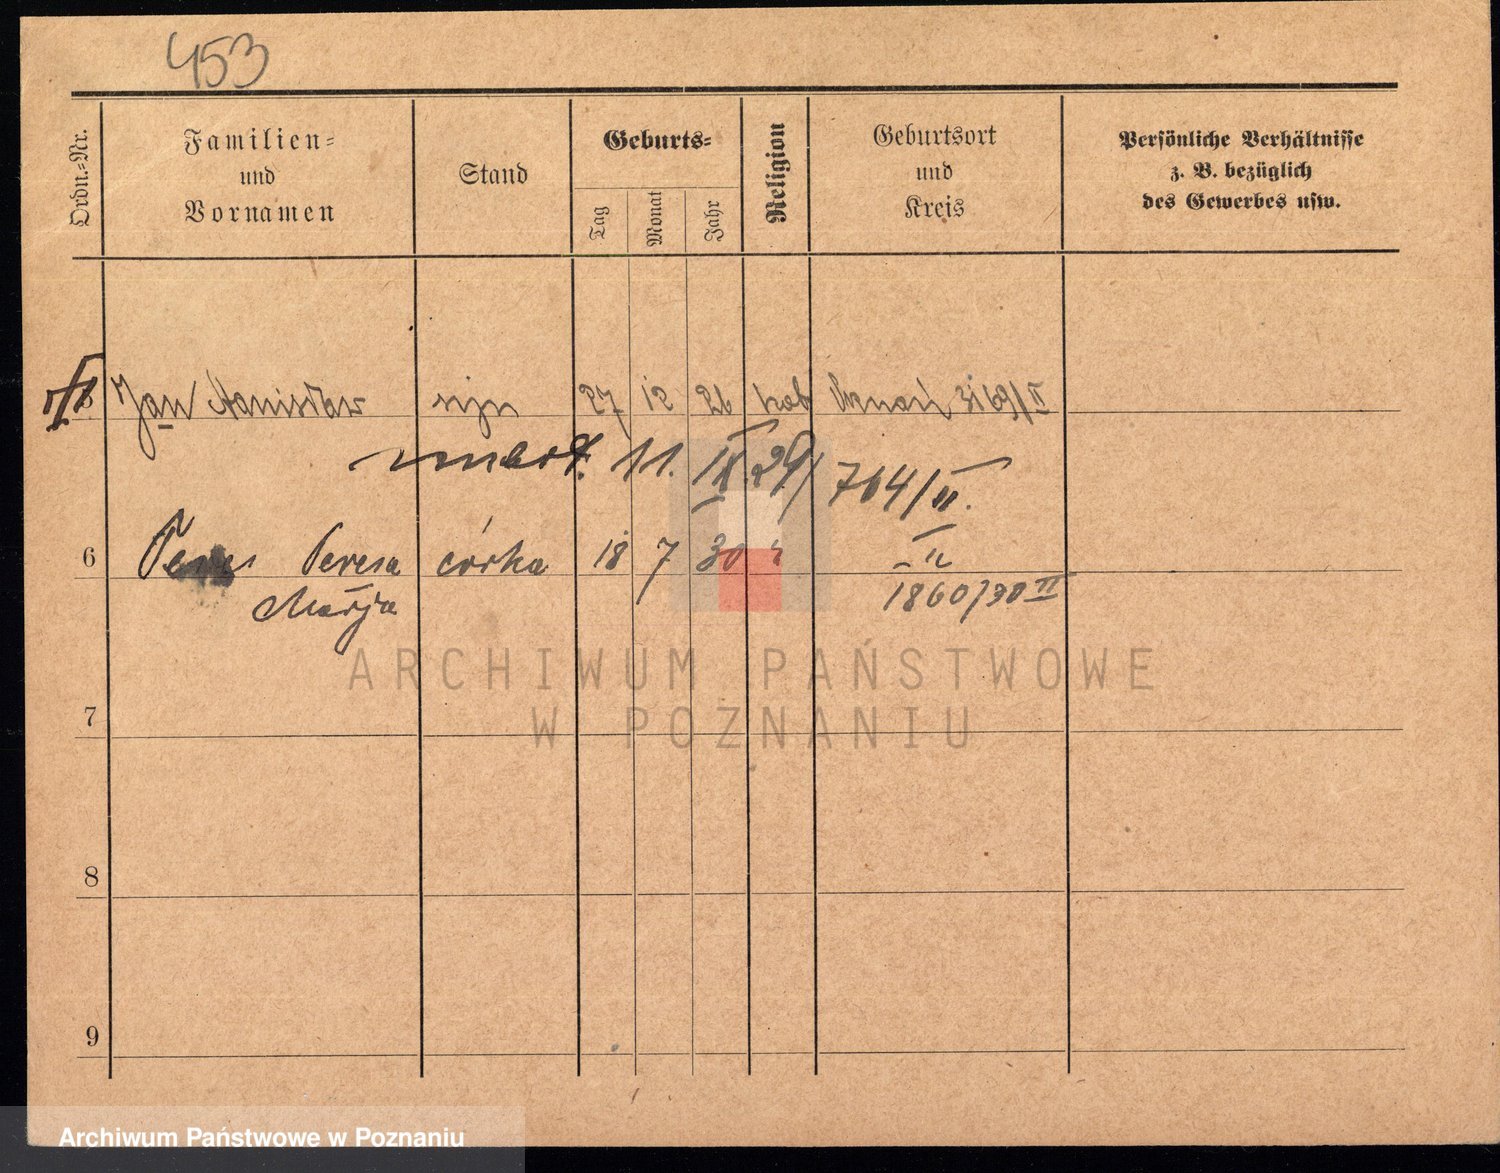 453
Ordn.-Nr.
Familien- und Vornamen
Stand
Geburts-
Tag
Monat
Jahr
Religion
Geburtsort und Kreis
Persönliche Verhältnisse z. B. bezüglich des Gewerbes usw.
Jan Stanisław syn 27 12 26 kat Poznań 3169/II
umarł. 11. IX. 29. 764/II.
6 Teresa córka 18 7 30 "
Marja 1860/30 II
ARCHIWUM PAŃSTWOWE
W POZNANIU
7
8
9
Archiwum Państwowe w Poznaniu